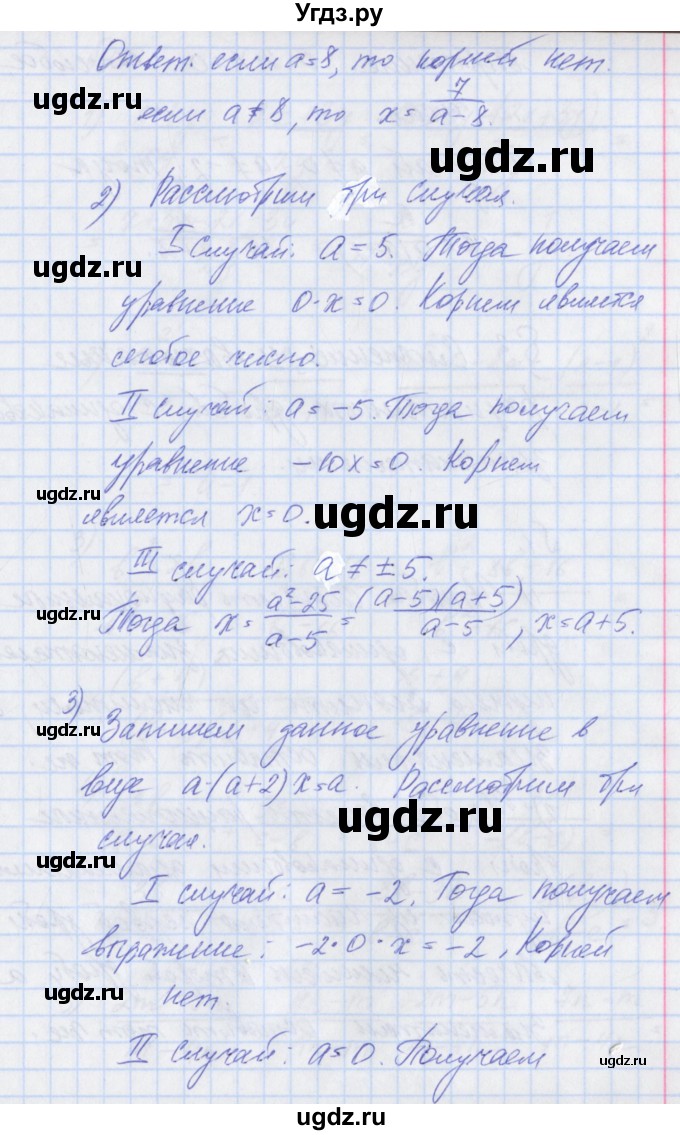 Угдз.ру
Ответ: если a=8, то корней нет.
если a≠8, то x = 7/(a-8).
2) Рассмотрим три случая.
I случай: a = 5. Тогда получаем
уравнение 0·x=0. Корнем является
любое число.
II случай: a = -5. Тогда получаем
уравнение -10x=0. Корнем
является x=0.
III случай: a ≠ ±5.
Тогда x = (a²-25)/(a-5) = ((a-5)(a+5))/(a-5), x=a+5.
3) Запишем данное уравнение в
виде a·(a+2)x=a. Рассмотрим три
случая.
I случай: a = -2. Тогда получаем
выражение: -2·0·x = -2, Корней
нет.
II случай: a=0. Получаем
ugdz.ru
ugdz.ru
ugdz.ru
ugdz.ru
ugdz.ru
ugdz.ru
ugdz.ru
ugdz.ru
ugdz.ru
ugdz.ru
ugdz.ru
ugdz.ru
ugdz.ru